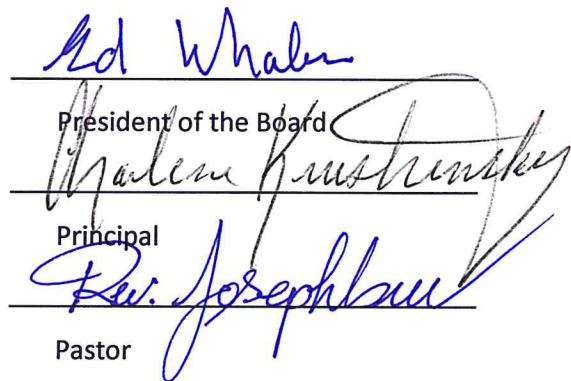 Ed Whalen
President of the Board
Marlene Krushinsky
Principal
Rev. Joseph
Pastor